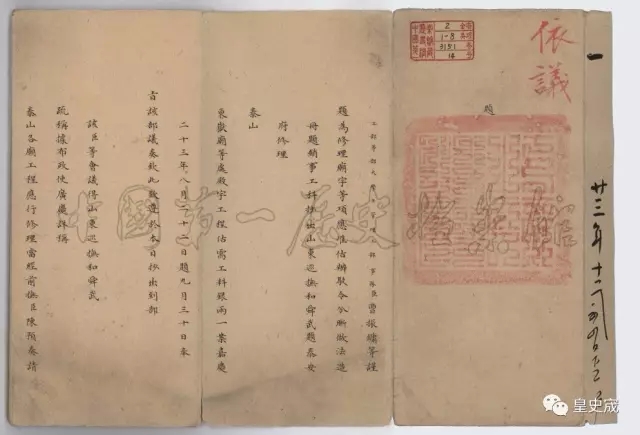 一
廿三年十
依議
2
1-8
3191
14
題
曹振鏞等謹
題為修理廟宇等項應准估辦飭令分晰做法造
冊題銷事工科抄出山東巡撫和舜武題泰安
府修理
泰山
東嶽廟等處殿宇工程估需工料銀兩一案嘉慶
二十三年八月二十二日題九月三十日奉
旨該部議奏欽此欽遵於本日抄出到部
該臣等會議得山東巡撫和舜武
疏稱據布政使廣慶詳稱
泰山各廟工程應行修理當經前撫臣陳預奏請
中國第一歷史檔案館
皇史宬